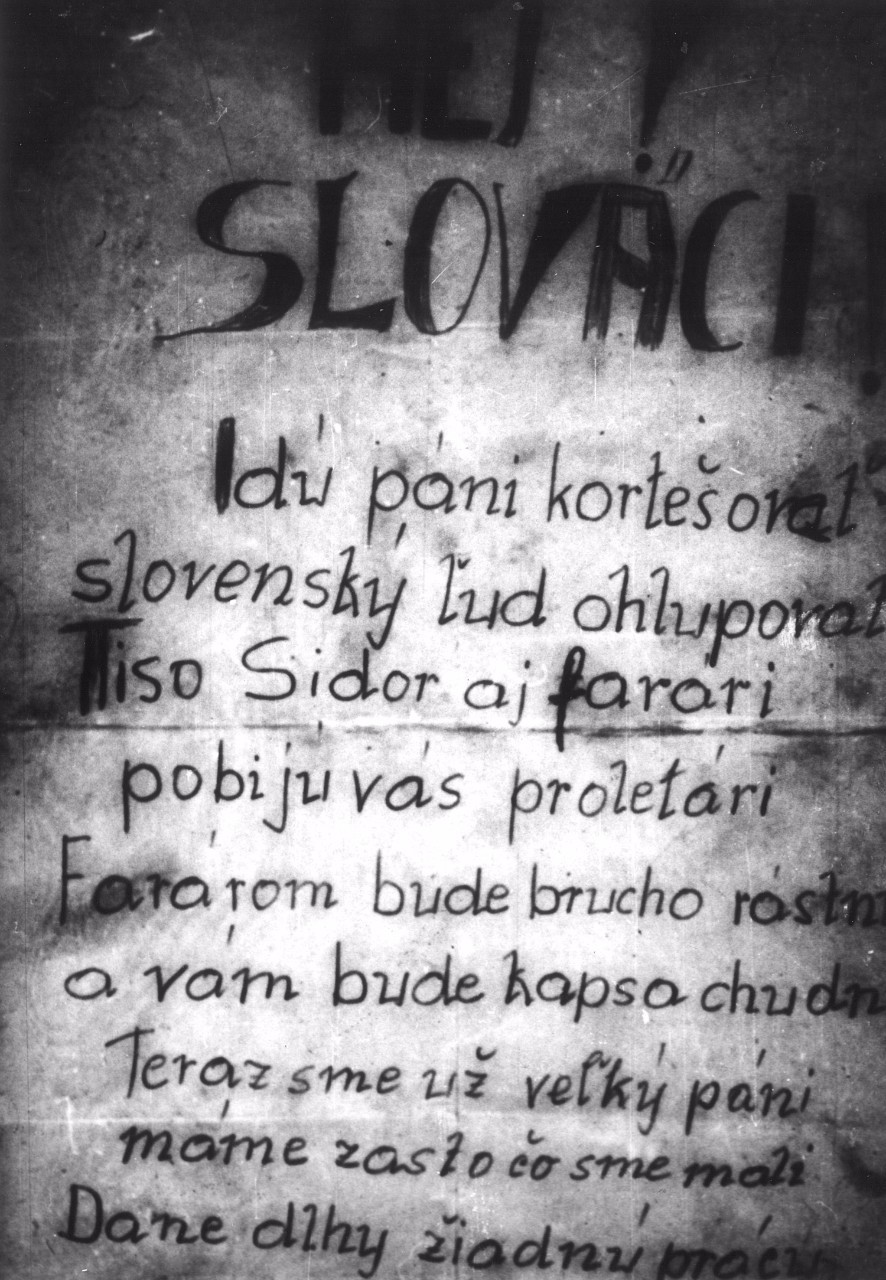 HEJ!
SLOVÁCI!
Idú páni kortešovať
slovenský ľud ohlupovat
Tiso Sidor aj farári
pobijú vás proletári
Farárom bude brucho rástn
a vám bude kapsa chudn
Teraz sme už veľký páni
máme zasto čo sme mali
Dane dlhy žiadnú prácu